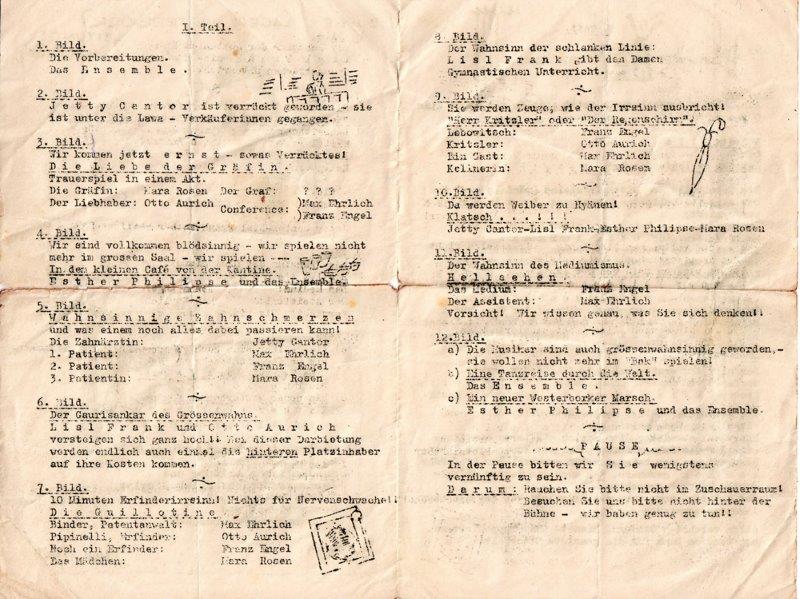 I. Teil.
1. Bild.
Die Vorbereitungen.
Das Ensemble.
2. Bild.
Jetty Cantor ist verrückt geworden - sie
ist unter die Lawa - Verkäuferinnen gegangen.
3. Bild.
Wir kommen jetzt ernst - sowas Verrücktes!
Die Liebe der Gräfin.
Trauerspiel in einem Akt.
Die Gräfin: Mara Rosen Der Graf: ? ? ?
Der Liebhaber: Otto Aurich Conference: )Max Ehrlich
)Franz Engel
4. Bild.
Wir sind vollkommen blödsinnig - wir spielen nicht
mehr im grossen Saal - wir spielen ---
In dem kleinen Café von der Kantine.
Esther Philipse und das Ensemble.
5. Bild.
Wahnsinnige Zahnschmerzen
und was einem noch alles dabei passieren kann!
Die Zahnärztin: Jetty Cantor
1. Patient: Max Ehrlich
2. Patient: Franz Engel
3. Patientin: Mara Rosen
6. Bild.
Der Gaurisankar des Grössenwahns.
Lisl Frank und Otto Aurich
versteigen sich ganz hoch!! Bei dieser Darbietung
werden endlich auch einmal die hinteren Platzinhaber
auf ihre Kosten kommen.
7. Bild.
10 Minuten Erfinderirrsinn! Nichts für Nervenschwache!
Die Guillotine
Binder, Patentanwalt: Max Ehrlich
Pipinelli, Erfinder: Otto Aurich
Noch ein Erfinder: Franz Engel
Das Mädchen: Mara Rosen
8. Bild.
Der Wahnsinn der schlanken Linie:
Lisl Frank gibt den Damen
Gymnastischen Unterricht.
9. Bild.
Sie werden Zeuge, wie der Irrsinn ausbricht!
"Herr Kritzler" oder "Der Regenschirm".
Lebowitsch: Franz Engel
Kritzler: Otto Aurich
Ein Gast: Max Ehrlich
Kellnerin: Mara Rosen
10.Bild.
Da werden Weiber zu Hyänen!
Klatsch . . . ! ! !
Jetty Cantor-Lisl Frank-Esther Philipse-Mara Rosen
11.Bild.
Der Wahnsinn des Mediumismus.
Hellsehen.
Das Medium: Franz Engel
Der Assistent: Max Ehrlich
Vorsicht! Wir wissen genau, was Sie sich denken!!
12.Bild.
a) Die Musiker sind auch grössenwahnsinnig geworden,-
sie wollen nicht mehr im "Bak" spielen!
b) Eine Tanzreise durch die Welt.
Das Ensemble.
c) Ein neuer Westerborker Marsch.
Esther Philipse und das Ensemble.
PAUSE
In der Pause bitten wir Sie wenigstens
vernünftig zu sein.
Darum: Rauchen Sie bitte nicht im Zuschauerraum!
Besuchen Sie uns bitte nicht hinter der
Bühne - wir haben genug zu tun!!